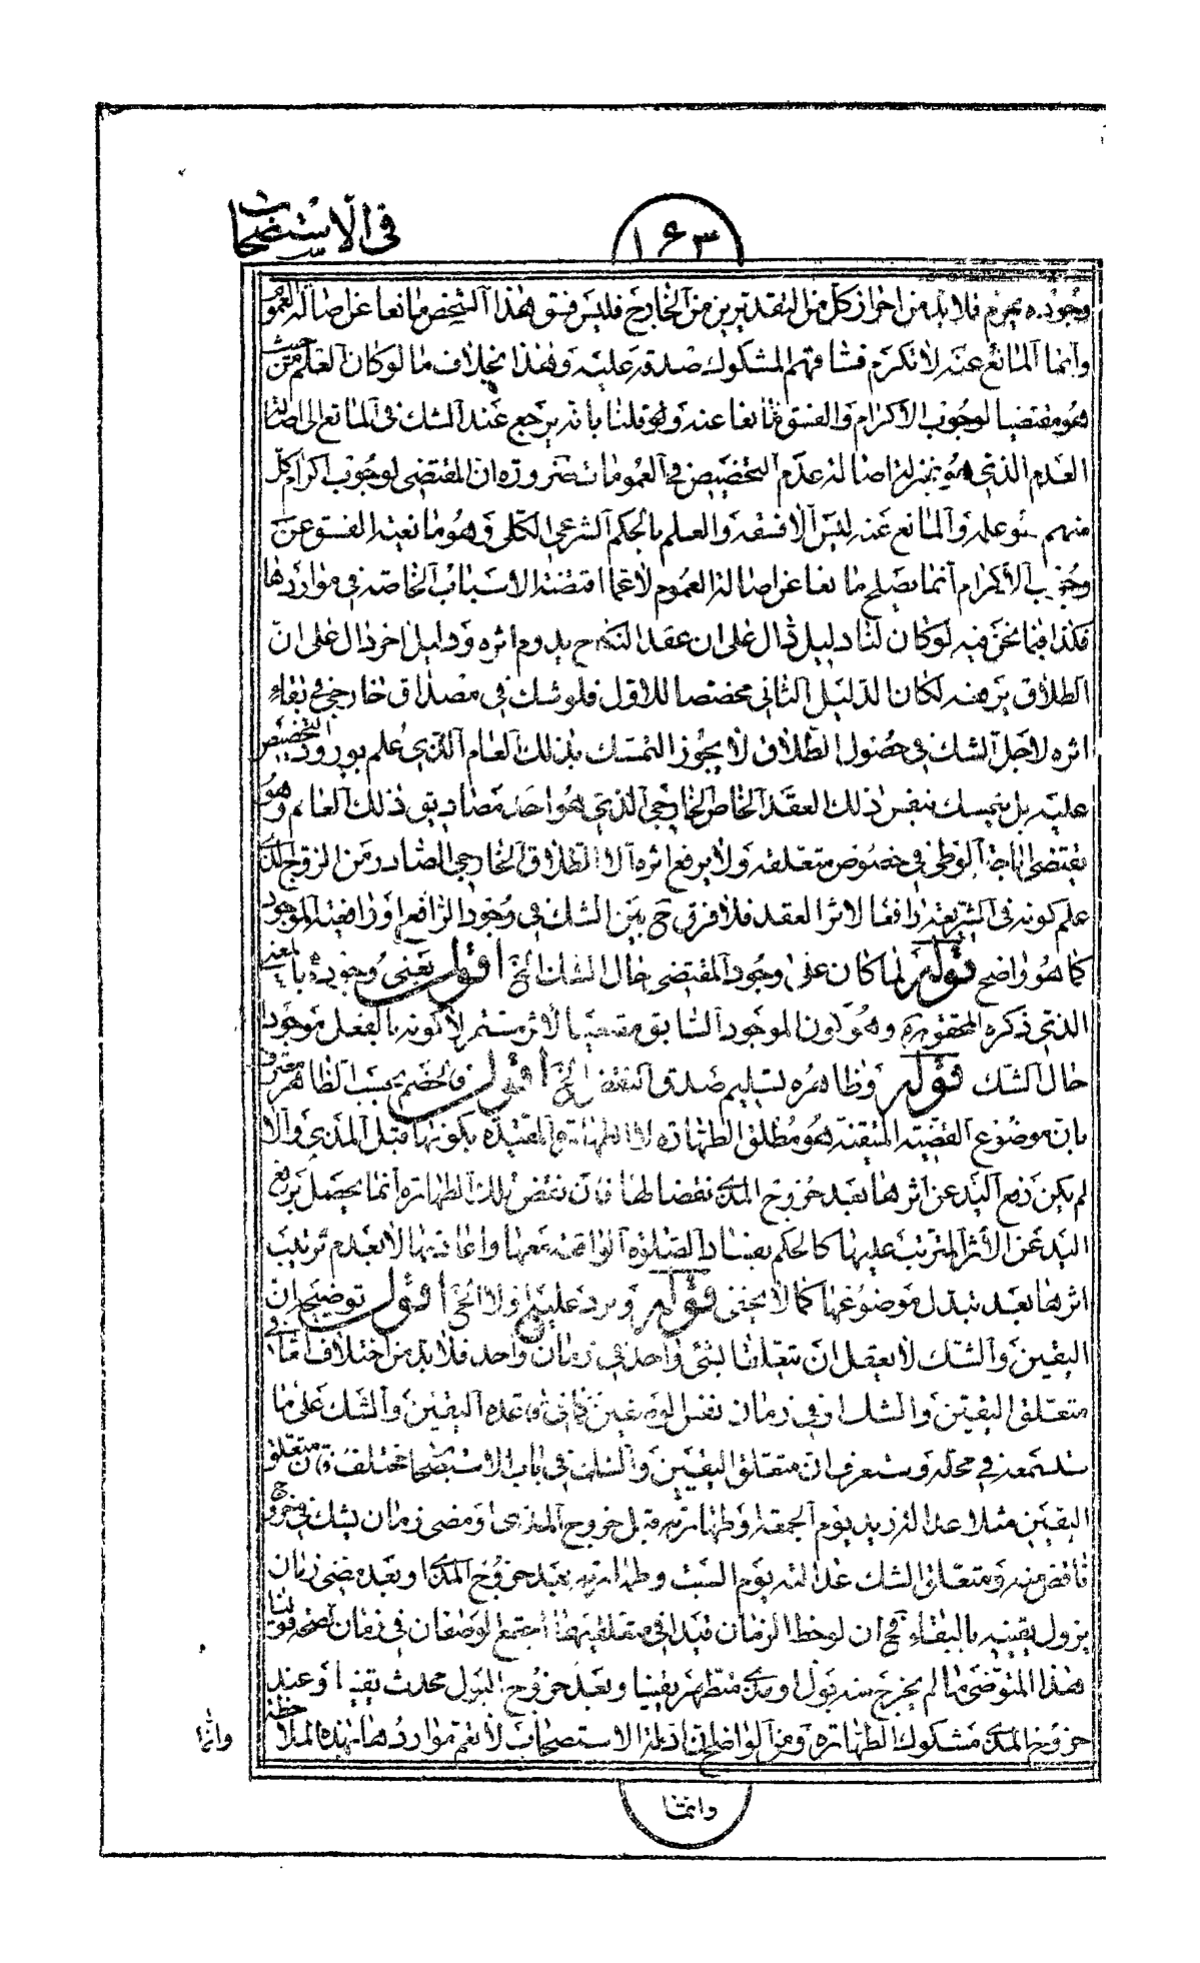 في الاستصحاب
١٦٣
وجوده يحرم فلابد من احراز كل من التقديرين من الخارج فليس فسق هذا الشخص مانعا عن اصالة العموم
وانما المانع عنه لا تكرم فساقهم المشكوك صدقه عليه وهذا بخلاف ما لو كان العلم من حيث
هو مقتضيا لوجوب الاكرام والفسق مانعا عنه ولو قلنا بانه يرجع عند الشك في المانع الى اصالة
العدم الذي هو بمنزلة اصالة عدم التخصيص في العمومات ضرورة ان المقتضى لوجوب اكرام كل
منهم علمه والمانع عنه ليس الا فسقه والعلم بالحكم الشرعي الكلي وهو مانعية الفسق عن
وجوب الاكرام انما يصلح مانعا عن اصالة العموم لا عما اقتضته الاسباب الخاصة في مواردها
فكذا فيما نحن فيه لو كان لنا دليل دال على ان عقد النكاح يدوم اثره ودليل اخر دال على ان
الطلاق يرفعه لكان الدليل الثاني مخصصا للاول فلو شك في مصداق خارجي في بقاء
اثره لاجل الشك في حصول الطلاق لا يجوز التمسك بذلك العام الذي علم بورود التخصيص
عليه بل يتمسك بنفس ذلك العقد الخاص الخارجي الذي هو احد مصاديق ذلك العام وهو
يقتضى اباحة الوطي في خصوص متعلقه ولا يرفع اثره الا الطلاق الخارجي الصادر من الزوج الذي
علم كونه في الشريعة رافعا لاثر العقد فلا فرق ح بين الشك في وجود الرافع او رافعية الموجود
كما هو واضح قوله لما كان على وجود المقتضى حال الشك الخ اقول يعني وجوده بالمعنى
الذي ذكره المحقق ره وهو كون الموجود السابق مقتضيا لاثر مستمر لا كونه بالفعل موجودا
حال الشك قوله وظاهره تسليم صدق النقض الخ اقول فالخصم بحسب الظاهر معترف
بان موضوع القضية المتيقنة هو مطلق الطهارة لا الطهارة المقيدة بكونها قبل المذي والا
لم يكن رفع اليد عن اثرها بعد خروج المذي نقضا لها فان نقض تلك الطهارة انما يحصل برفع
اليد عن الاثر المترتب عليها كالحكم بفساد الصلوة الواقعة معها واعادتها لا بعدم ترتيب
اثرها بعد تبدل موضوعها كما لا يخفى قوله ويرد عليه اولا الخ اقول توضيحه ان
اليقين والشك لا يعقل ان يتعلقا بشئ واحد في زمان واحد فلابد من اختلاف اما في
متعلق اليقين والشك او في زمان نفس الوصفين كما في قاعدة اليقين والشك على ما
ستسمعه في محله وستعرف ان متعلق اليقين والشك في باب الاستصحاب مختلف فان متعلق
اليقين مثلا عدالة زيد يوم الجمعة وطهارته قبل خروج المذي او مضى زمان يشك في خروج
ناقض منه ومتعلق الشك عدالته يوم السبت وطهارته بعد خروج المذي او بعد مضى زمان
يزول يقينه بالبقاء فح ان لوحظ الزمان قيدا في متعلقيهما اجتمع الوصفان في زمان فصح قولنا
هذا المتوضئ ما لم يخرج منه بول او مذي متطهر يقينا وبعد خروج البول محدث يقينا وعند
خروج المذي مشكوك الطهارة ومن الواضح ان ادلة الاستصحاب لا تعم مواردها بهذه الملاحظة
وانما
وانما